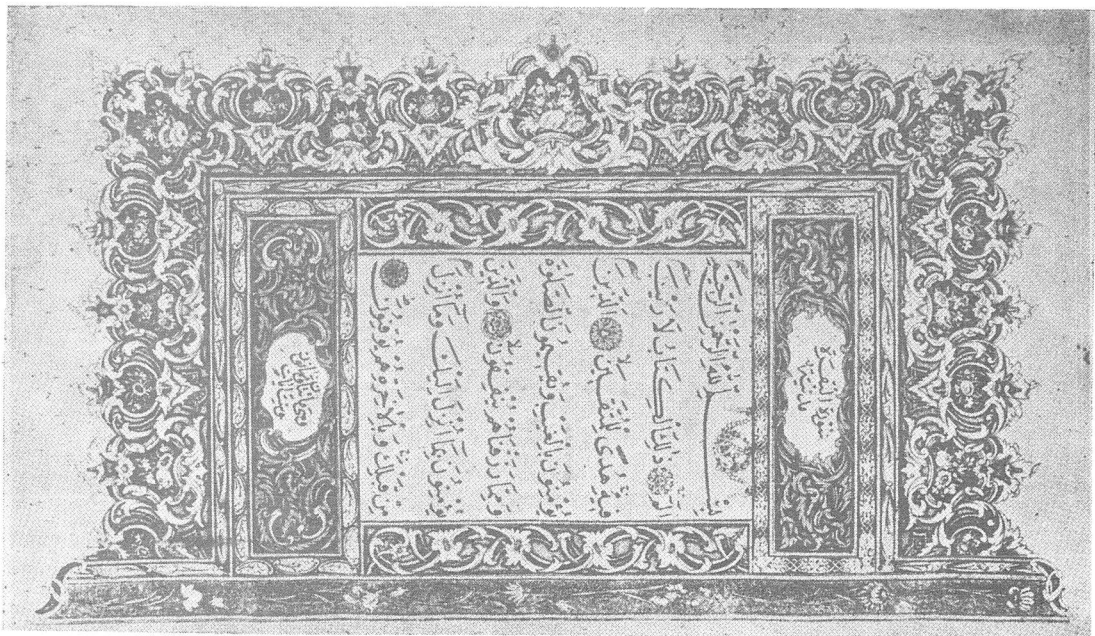 سُورَةُ الْبَقَرَةِ
مَدَنِيَّةٌ
بِسْمِ اللّٰهِ الرَّحْمٰنِ الرَّحِيمِ
الٓمٓ ذٰلِكَ الْكِتَابُ لَا رَيْبَ
فِيهِ هُدًى لِلْمُتَّقِينَ الَّذِينَ
يُؤْمِنُونَ بِالْغَيْبِ وَيُقِيمُونَ الصَّلٰوةَ
وَمِمَّا رَزَقْنَاهُمْ يُنْفِقُونَ وَالَّذِينَ
يُؤْمِنُونَ بِمَا أُنْزِلَ إِلَيْكَ وَمَا أُنْزِلَ
مِنْ قَبْلِكَ وَبِالْاٰخِرَةِ هُمْ يُوقِنُونَ